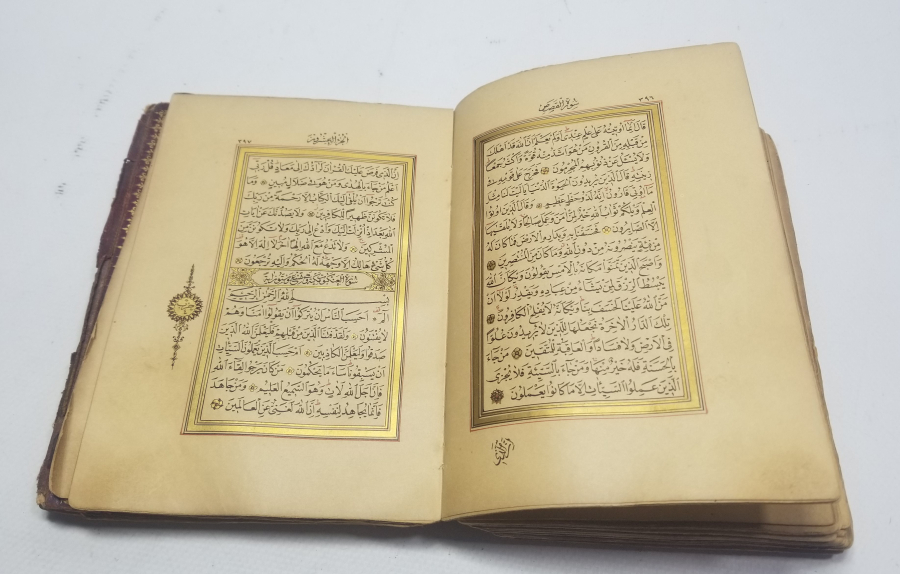 سورة القصص ٣٩٦
قَالَ اِنَّمَا اُوتِيتُهُ عَلٰى عِلْمٍ عِنْدِى اَوَلَمْ يَعْلَمْ اَنَّ اللّٰهَ قَدْ اَهْلَكَ
مِنْ قَبْلِهِ مِنَ الْقُرُونِ مَنْ هُوَ اَشَدُّ مِنْهُ قُوَّةً وَاَكْثَرُ جَمْعًا
وَلَا يُسْئَلُ عَنْ ذُنُوبِهِمُ الْمُجْرِمُونَ فَخَرَجَ عَلٰى قَوْمِهِ فِى
زِينَتِهِ قَالَ الَّذِينَ يُرِيدُونَ الْحَيٰوةَ الدُّنْيَا يَا لَيْتَ لَنَا مِثْلَ
مَا اُوتِىَ قَارُونُ اِنَّهُ لَذُو حَظٍّ عَظِيمٍ وَقَالَ الَّذِينَ اُوتُوا
الْعِلْمَ وَيْلَكُمْ ثَوَابُ اللّٰهِ خَيْرٌ لِمَنْ اٰمَنَ وَعَمِلَ صَالِحًا وَلَا يُلَقّٰيهَا
اِلَّا الصَّابِرُونَ فَخَسَفْنَا بِهِ وَبِدَارِهِ الْاَرْضَ فَمَا كَانَ لَهُ
مِنْ فِئَةٍ يَنْصُرُونَهُ مِنْ دُونِ اللّٰهِ وَمَا كَانَ مِنَ الْمُنْتَصِرِينَ
وَاَصْبَحَ الَّذِينَ تَمَنَّوْا مَكَانَهُ بِالْاَمْسِ يَقُولُونَ وَيْكَاَنَّ اللّٰهَ
يَبْسُطُ الرِّزْقَ لِمَنْ يَشَاءُ مِنْ عِبَادِهِ وَيَقْدِرُ لَوْلَا اَنْ
مَنَّ اللّٰهُ عَلَيْنَا لَخَسَفَ بِنَا وَيْكَاَنَّهُ لَا يُفْلِحُ الْكَافِرُونَ
تِلْكَ الدَّارُ الْاٰخِرَةُ نَجْعَلُهَا لِلَّذِينَ لَا يُرِيدُونَ عُلُوًّا
فِى الْاَرْضِ وَلَا فَسَادًا وَالْعَاقِبَةُ لِلْمُتَّقِينَ مَنْ جَاءَ
بِالْحَسَنَةِ فَلَهُ خَيْرٌ مِنْهَا وَمَنْ جَاءَ بِالسَّيِّئَةِ فَلَا يُجْزَى
الَّذِينَ عَمِلُوا السَّيِّئَاتِ اِلَّا مَا كَانُوا يَعْمَلُونَ
ان الذى
الجزء العشرون ٣٩٧
اِنَّ الَّذِى فَرَضَ عَلَيْكَ الْقُرْاٰنَ لَرَادُّكَ اِلٰى مَعَادٍ قُلْ رَبِّى
اَعْلَمُ مَنْ جَاءَ بِالْهُدٰى وَمَنْ هُوَ فِى ضَلَالٍ مُبِينٍ وَمَا
كُنْتَ تَرْجُوا اَنْ يُلْقٰى اِلَيْكَ الْكِتَابُ اِلَّا رَحْمَةً مِنْ رَبِّكَ
فَلَا تَكُونَنَّ ظَهِيرًا لِلْكَافِرِينَ وَلَا يَصُدُّنَّكَ عَنْ اٰيَاتِ
اللّٰهِ بَعْدَ اِذْ اُنْزِلَتْ اِلَيْكَ وَادْعُ اِلٰى رَبِّكَ وَلَا تَكُونَنَّ مِنَ
الْمُشْرِكِينَ وَلَا تَدْعُ مَعَ اللّٰهِ اِلٰهًا اٰخَرَ لَا اِلٰهَ اِلَّا هُوَ
كُلُّ شَىْءٍ هَالِكٌ اِلَّا وَجْهَهُ لَهُ الْحُكْمُ وَاِلَيْهِ تُرْجَعُونَ
سورة العنكبوت
بِسْمِ اللّٰهِ الرَّحْمٰنِ الرَّحِيمِ
الٓمٓ اَحَسِبَ النَّاسُ اَنْ يُتْرَكُوا اَنْ يَقُولُوا اٰمَنَّا وَهُمْ
لَا يُفْتَنُونَ وَلَقَدْ فَتَنَّا الَّذِينَ مِنْ قَبْلِهِمْ فَلَيَعْلَمَنَّ اللّٰهُ الَّذِينَ
صَدَقُوا وَلَيَعْلَمَنَّ الْكَاذِبِينَ اَمْ حَسِبَ الَّذِينَ يَعْمَلُونَ السَّيِّئَاتِ
اَنْ يَسْبِقُونَا سَاءَ مَا يَحْكُمُونَ مَنْ كَانَ يَرْجُوا لِقَاءَ اللّٰهِ
فَاِنَّ اَجَلَ اللّٰهِ لَاٰتٍ وَهُوَ السَّمِيعُ الْعَلِيمُ وَمَنْ جَاهَدَ
فَاِنَّمَا يُجَاهِدُ لِنَفْسِهِ اِنَّ اللّٰهَ لَغَنِىٌّ عَنِ الْعَالَمِينَ